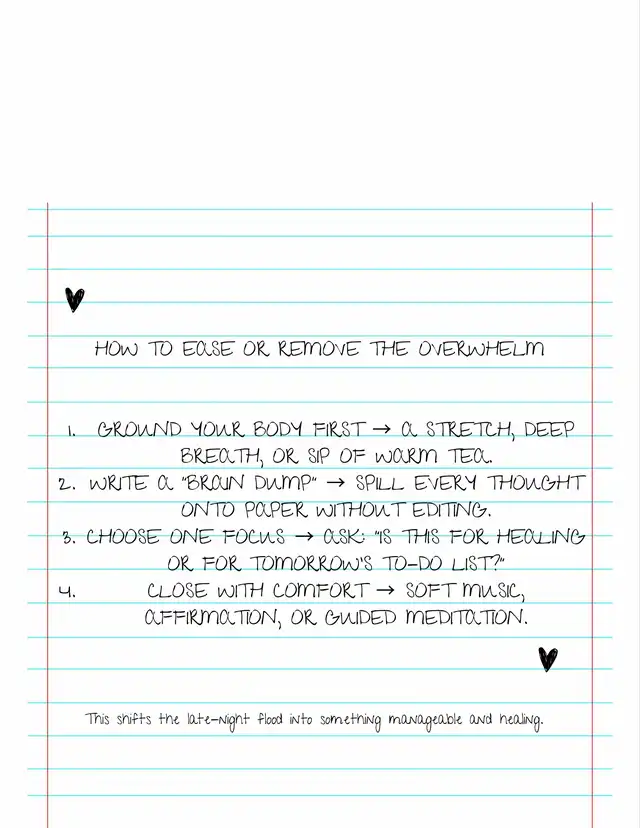 HOW TO EASE OR REMOVE THE OVERWHELM
1. GROUND YOUR BODY FIRST → A STRETCH, DEEP
BREATH, OR SIP OF WARM TEA.
2. WRITE A "BRAIN DUMP" → SPILL EVERY THOUGHT
ONTO PAPER WITHOUT EDITING.
3. CHOOSE ONE FOCUS → ASK: "IS THIS FOR HEALING
OR FOR TOMORROW'S TO-DO LIST?"
4. CLOSE WITH COMFORT → SOFT MUSIC,
AFFIRMATION, OR GUIDED MEDITATION.
This shifts the late-night flood into something manageable and healing.